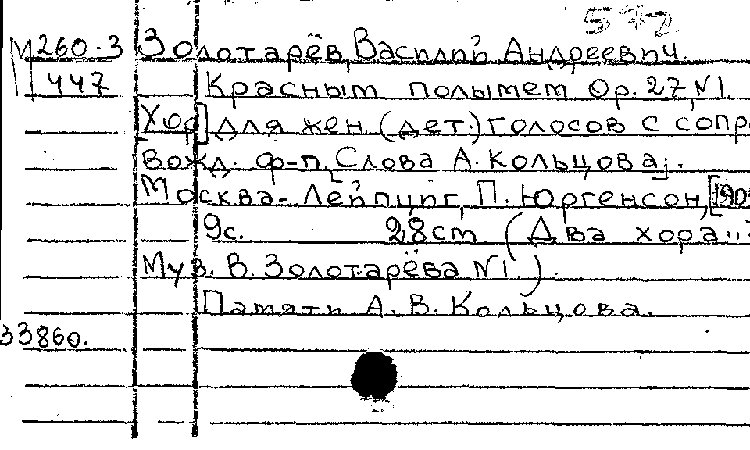 572
М 260-3 Золотарёв, Василий Андреевич.
447 Красным полымем Op. 27, N1.
[Хор] для жен (дет.) голосов с сопро
вожд. ф-п. [Слова А. Кольцова].
Москва-Лейпциг, П. Юргенсон, [190
9с. 28 cm (Два хора...
Муз. В. Золотарёва N1.)
Памяти А. В. Кольцова.
33860.